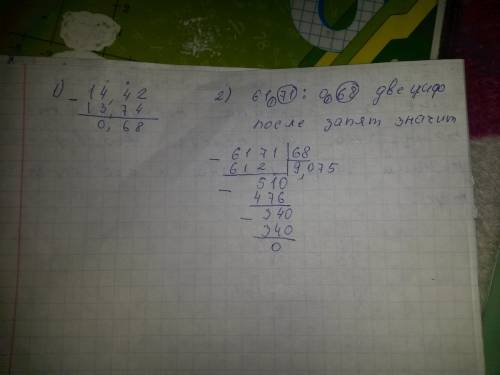 1) 14,42
- 13,74
0,68
2) 61,71 : 0,68 две циф
после запят значит
- 6171 | 68
612 | 9,075
- 510
476
- 340
340
0